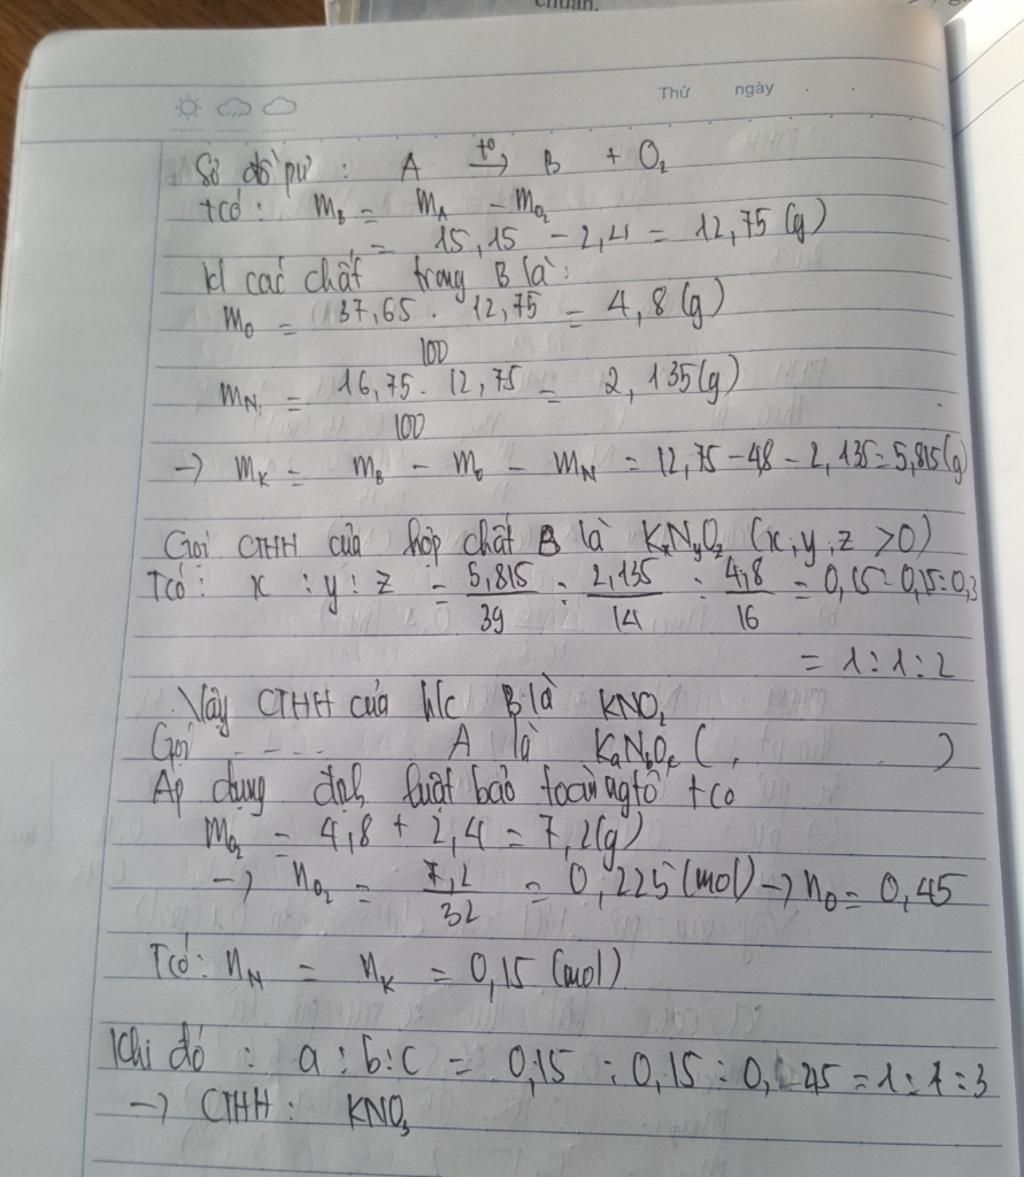 chuẩn.
Thứ ngày
Sơ đồ pư : A t° → B + O₂
tcó : m_B = m_A - m_O₂
= 15,15 - 2,4 = 12,75 (g)
kl các chất trong B là :
m_O = 37,65 . 12,75 / 100 = 4,8 (g)
m_N = 16,75 . 12,75 / 100 = 2,135 (g)
→ m_K = m_B - m_O - m_N = 12,75 - 4,8 - 2,135 = 5,815 (g)
Gọi CTHH của hợp chất B là KxNyOz (x, y, z > 0)
Tcó : x : y : z = 5,815/39 : 2,135/14 : 4,8/16 = 0,15 : 0,15 : 0,3
= 1 : 1 : 2
Vậy CTHH của h/c B là KNO₂
Gọi ---- A là KaNbOc ( , )
Áp dụng định luật bảo toàn ngtố tcó
m_O₂ = 4,8 + 2,4 = 7,2 (g)
→ n_O₂ = 7,2/32 = 0,225 (mol) → n_O = 0,45
Tcó : n_N = n_K = 0,15 (mol)
Khi đó : a : b : c = 0,15 : 0,15 : 0,45 = 1 : 1 : 3
→ CTHH : KNO₃